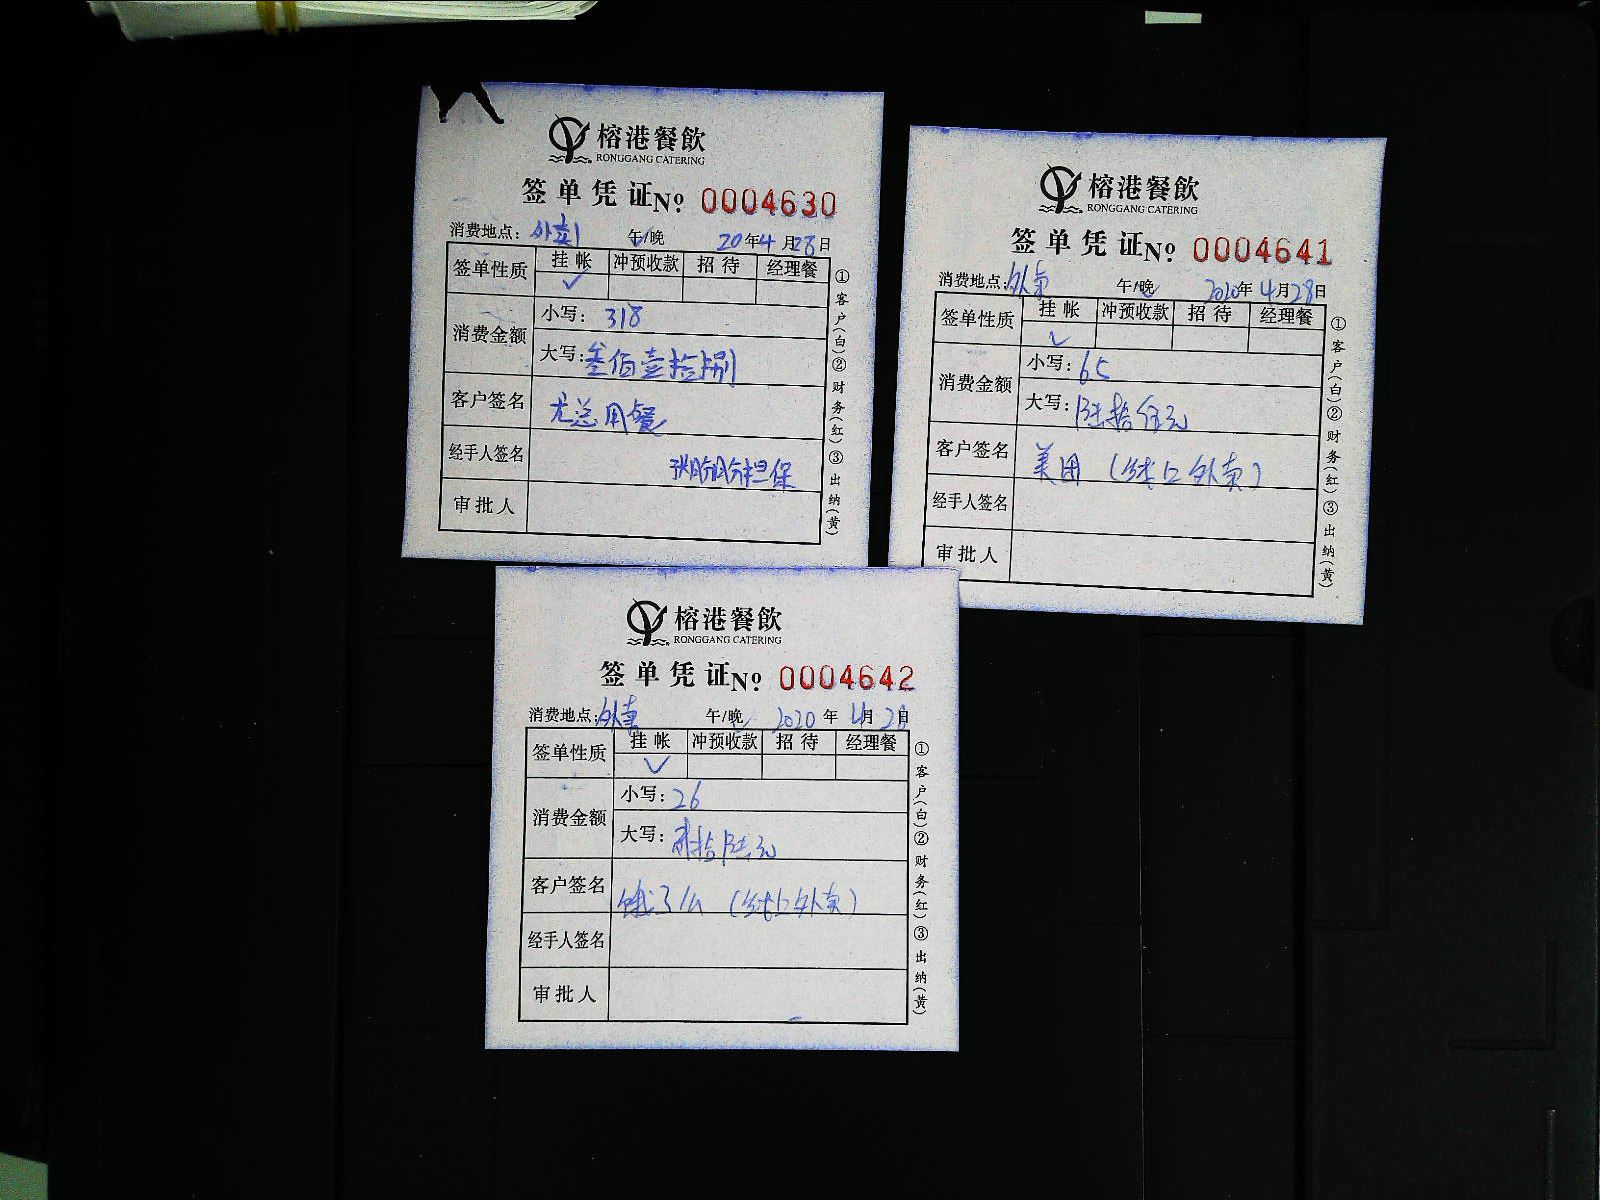 榕港餐飲
RONGGANG CATERING
签单凭证 No 0004630
消费地点: 外卖 午/晚 20年4月28日
签单性质 挂帐 冲预收款 招待 经理餐
✓
消费金额 小写: 318
大写: 叁佰壹拾捌
客户签名 尤总用餐
经手人签名 担保
审批人
①客户(白)②财务(红)③出纳(黄)
榕港餐飲
RONGGANG CATERING
签单凭证 No 0004641
消费地点: 外卖 午/晚 2020年4月28日
签单性质 挂帐 冲预收款 招待 经理餐
✓
消费金额 小写: 65
大写: 陆拾伍元
客户签名 美团 (线上外卖)
经手人签名
审批人
①客户(白)②财务(红)③出纳(黄)
榕港餐飲
RONGGANG CATERING
签单凭证 No 0004642
消费地点: 外卖 午/晚 2020年4月28日
签单性质 挂帐 冲预收款 招待 经理餐
✓
消费金额 小写: 26
大写: 贰拾陆元
客户签名 饿了么 (线上外卖)
经手人签名
审批人
①客户(白)②财务(红)③出纳(黄)